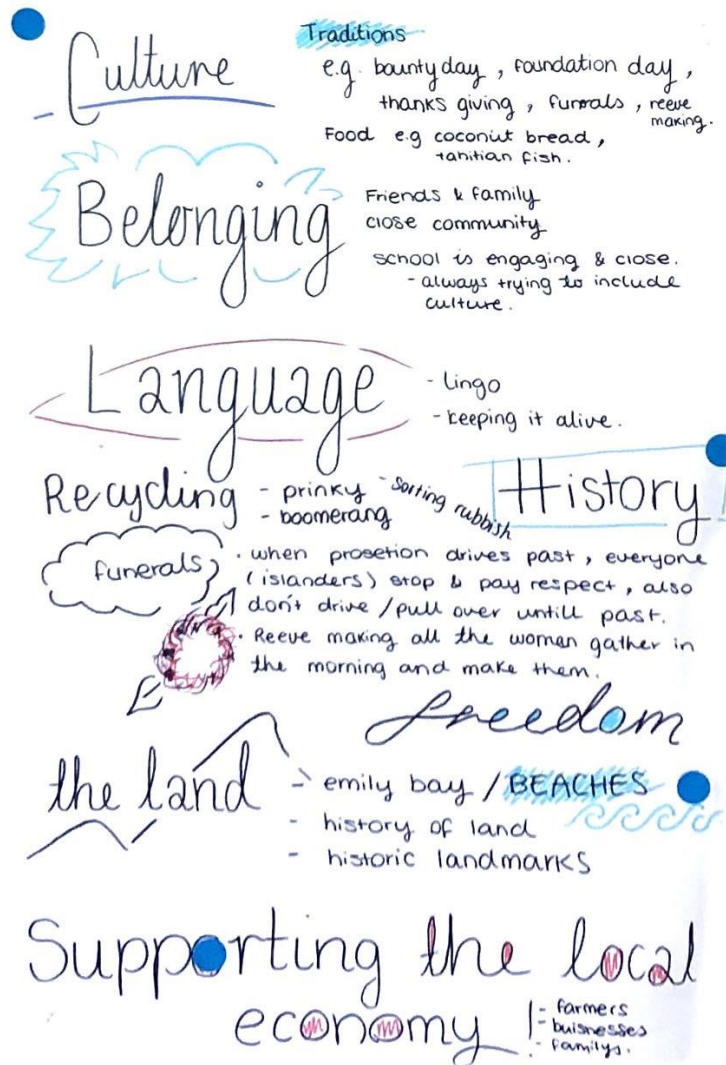 Culture
Traditions
e.g. bounty day , foundation day ,
thanks giving , funerals , reeve
making.
Food e.g coconut bread ,
tahitian fish .
Belonging
Friends & family
close community
school is engaging & close.
- always trying to include
culture.
Language
- Lingo
- keeping it alive.
Recycling
- prinky
- boomerang
- Sorting rubbish
History
funerals
. when prosetion drives past , everyone
(islanders) stop & pay respect , also
don't drive / pull over untill past.
. Reeve making all the women gather in
the morning and make them.
freedom
the land
- emily bay / BEACHES
- history of land
- historic landmarks
Supporting the local
economy
- farmers
- buisnesses
- familys.